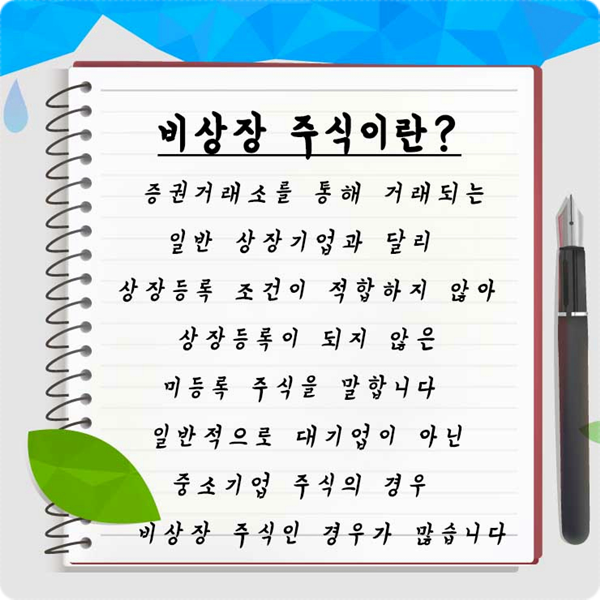 비상장 주식이란?
증권거래소를 통해 거래되는
일반 상장기업과 달리
상장등록 조건이 적합하지 않아
상장등록이 되지 않은
미등록 주식을 말합니다
일반적으로 대기업이 아닌
중소기업 주식의 경우
비상장 주식인 경우가 많습니다